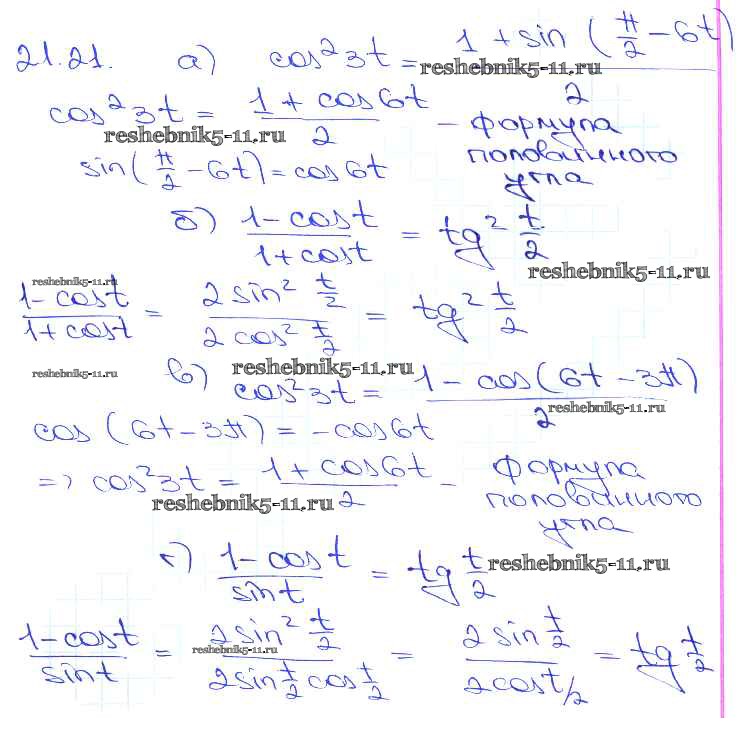 21.21. а) cos²3t = (1 + sin(π/2 − 6t))/2
reshebnik5-11.ru
cos²3t = (1 + cos6t)/2 – формула
reshebnik5-11.ru
половинного
sin(π/2 − 6t) = cos6t угла
б) (1 − cost)/(1 + cost) = tg² t/2
reshebnik5-11.ru
reshebnik5-11.ru
(1 − cost)/(1 + cost) = (2 sin² t/2)/(2 cos² t/2) = tg² t/2
reshebnik5-11.ru
reshebnik5-11.ru
в) cos²3t = (1 − cos(6t − 3π))/2
reshebnik5-11.ru
cos(6t − 3π) = −cos6t
=> cos²3t = (1 + cos6t)/2 – формула
половинного
reshebnik5-11.ru
угла
г) (1 − cost)/sint = tg t/2
reshebnik5-11.ru
(1 − cost)/sint = (2 sin² t/2)/(2 sin t/2 cos t/2) = (2 sin t/2)/(2 cos t/2) = tg t/2
reshebnik5-11.ru